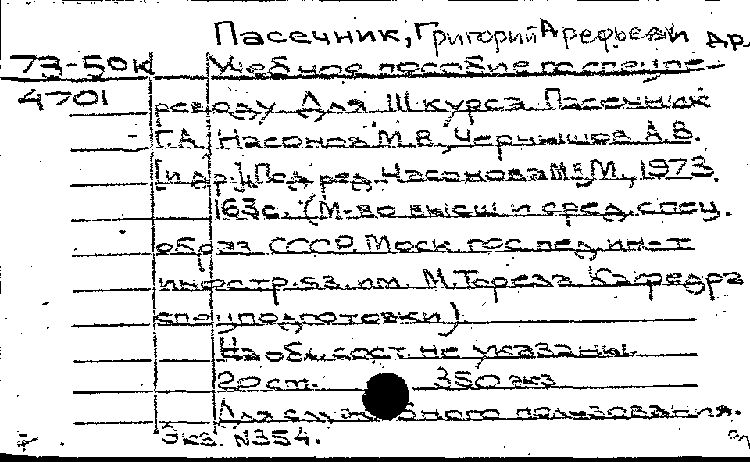 Пасечник, Григорий Арефьеви др
73-50к Учебное пособие по спецпе-
4701 реводу Для III курса Пасечник
Г.А., Насонов М.В., Чернышов А.В.
[и др.]. Под ред. Насонова М., 1973
163с. (М-во высш и сред. спец.
образ СССР. Моск гос пед инст
иностр. яз. им. М. Тореза Кафедра
спецподготовки)
На обл. сост. не указаны.
20 ст. 350 экз
Для служебного пользования.
Экз. N354.